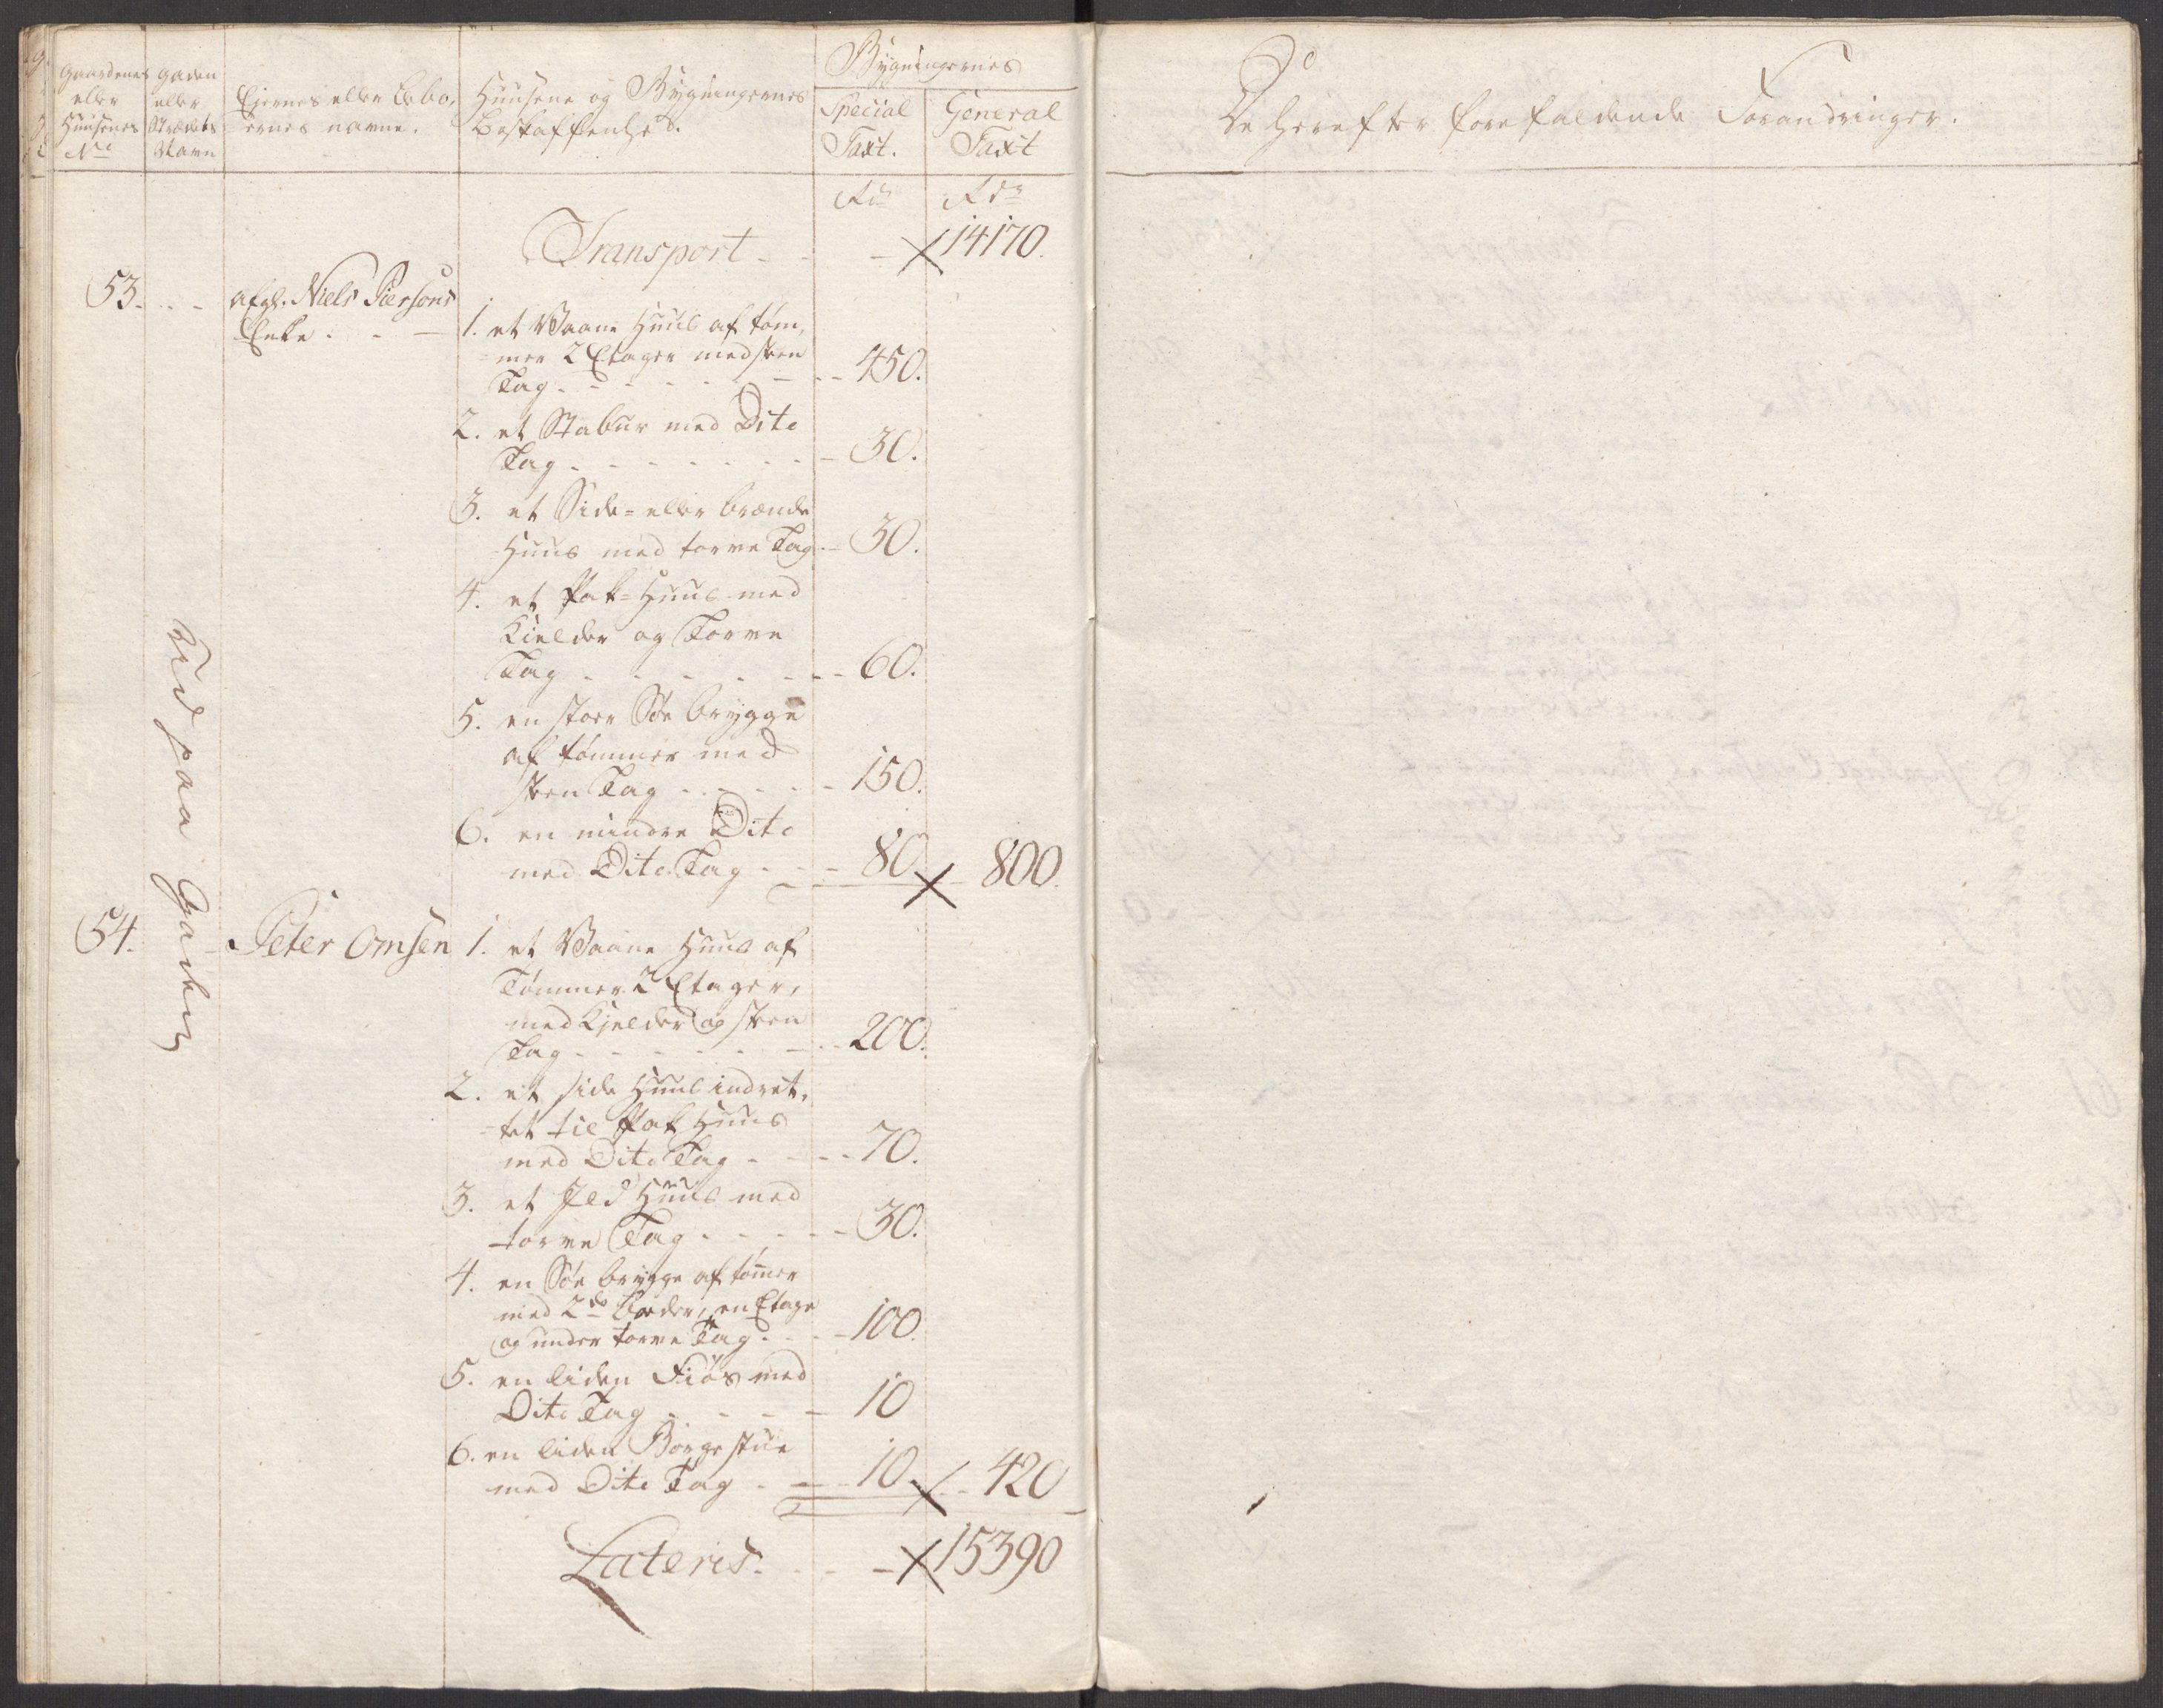 Gaardenes
eller
Huusenes
No
Gaden
eller
Strædets
Navn
Ejernes eller Bebo,
ernes navne.
Huusene og Bygningernes
beskaffenhed.
Bygningernes
Special
Taxt.
General
Taxt
Rdr
Rdr
Transport - - 14170.
53. - - afgl. Niels Piersons
Enke. - - 1. et Vaane Huus af töm,
mer 2 Etager med steen
Tag - - - 450.
2. et Stabur med Dito
Tag - - - 30.
3. et Side- eller brænde
Huus med torve Tag - 30.
4. et Pak-Huus med
Kielder og Torve
Tag - - - 60.
5. en stor Söe brygge
af tömmer med
steen Tag - - - 150.
6. en mindre Dito
med Dito Tag - - 80. 800.
Ud paa Gaden
54. - Peter Omsen 1. et Vaane Huus af
Tömmer 2 Etager,
med Kjelder og steen
Tag - - - 200.
2. et side Huus indret,
tet til Pak Huus
med Dito Tag - - 70.
3. et Ild Huus med
torve Tag - - - 30.
4. en Söe brygge af tömer
med 2de boder, en Etage
og under torve Tag - - 100.
5. en liden Fiös med
Dito Tag - - - 10
6. en liden Borgestue
med Dito Tag - - 10. 420
Lateris. - - 15390
De herefter forefaldende Forandringer.